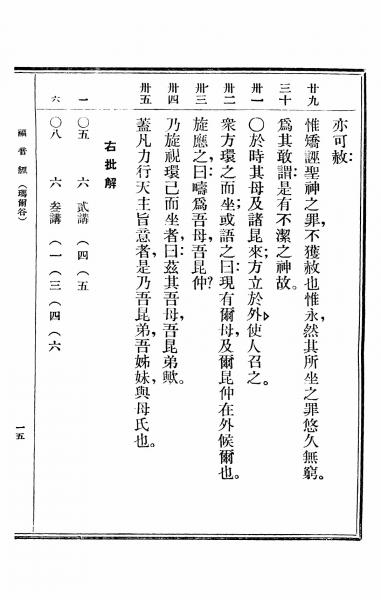 亦可赦：
廿九 惟矯誣聖神之罪，不獲赦也惟永，然其所坐之罪悠久無窮。
三十 爲其敢謂：是有不潔之神故。
卅一 〇於時其母及諸昆來；方立於外，使人召之。
卅二 衆方環之而坐；或語之曰：現有爾母，及爾昆仲在外候爾也。
卅三 旋應之曰：疇爲吾母吾昆仲？
卅四 乃旋視環己而坐者；曰：茲其吾母，吾昆弟歟。
卅五 蓋凡力行天主旨意者，是乃吾昆弟，吾姊妹，與母氏也。
右批解
一 〇五 六 貳講 （四（五
六 〇八 六 叁講 （一（三（四（六
福音經（瑪爾谷）
一五